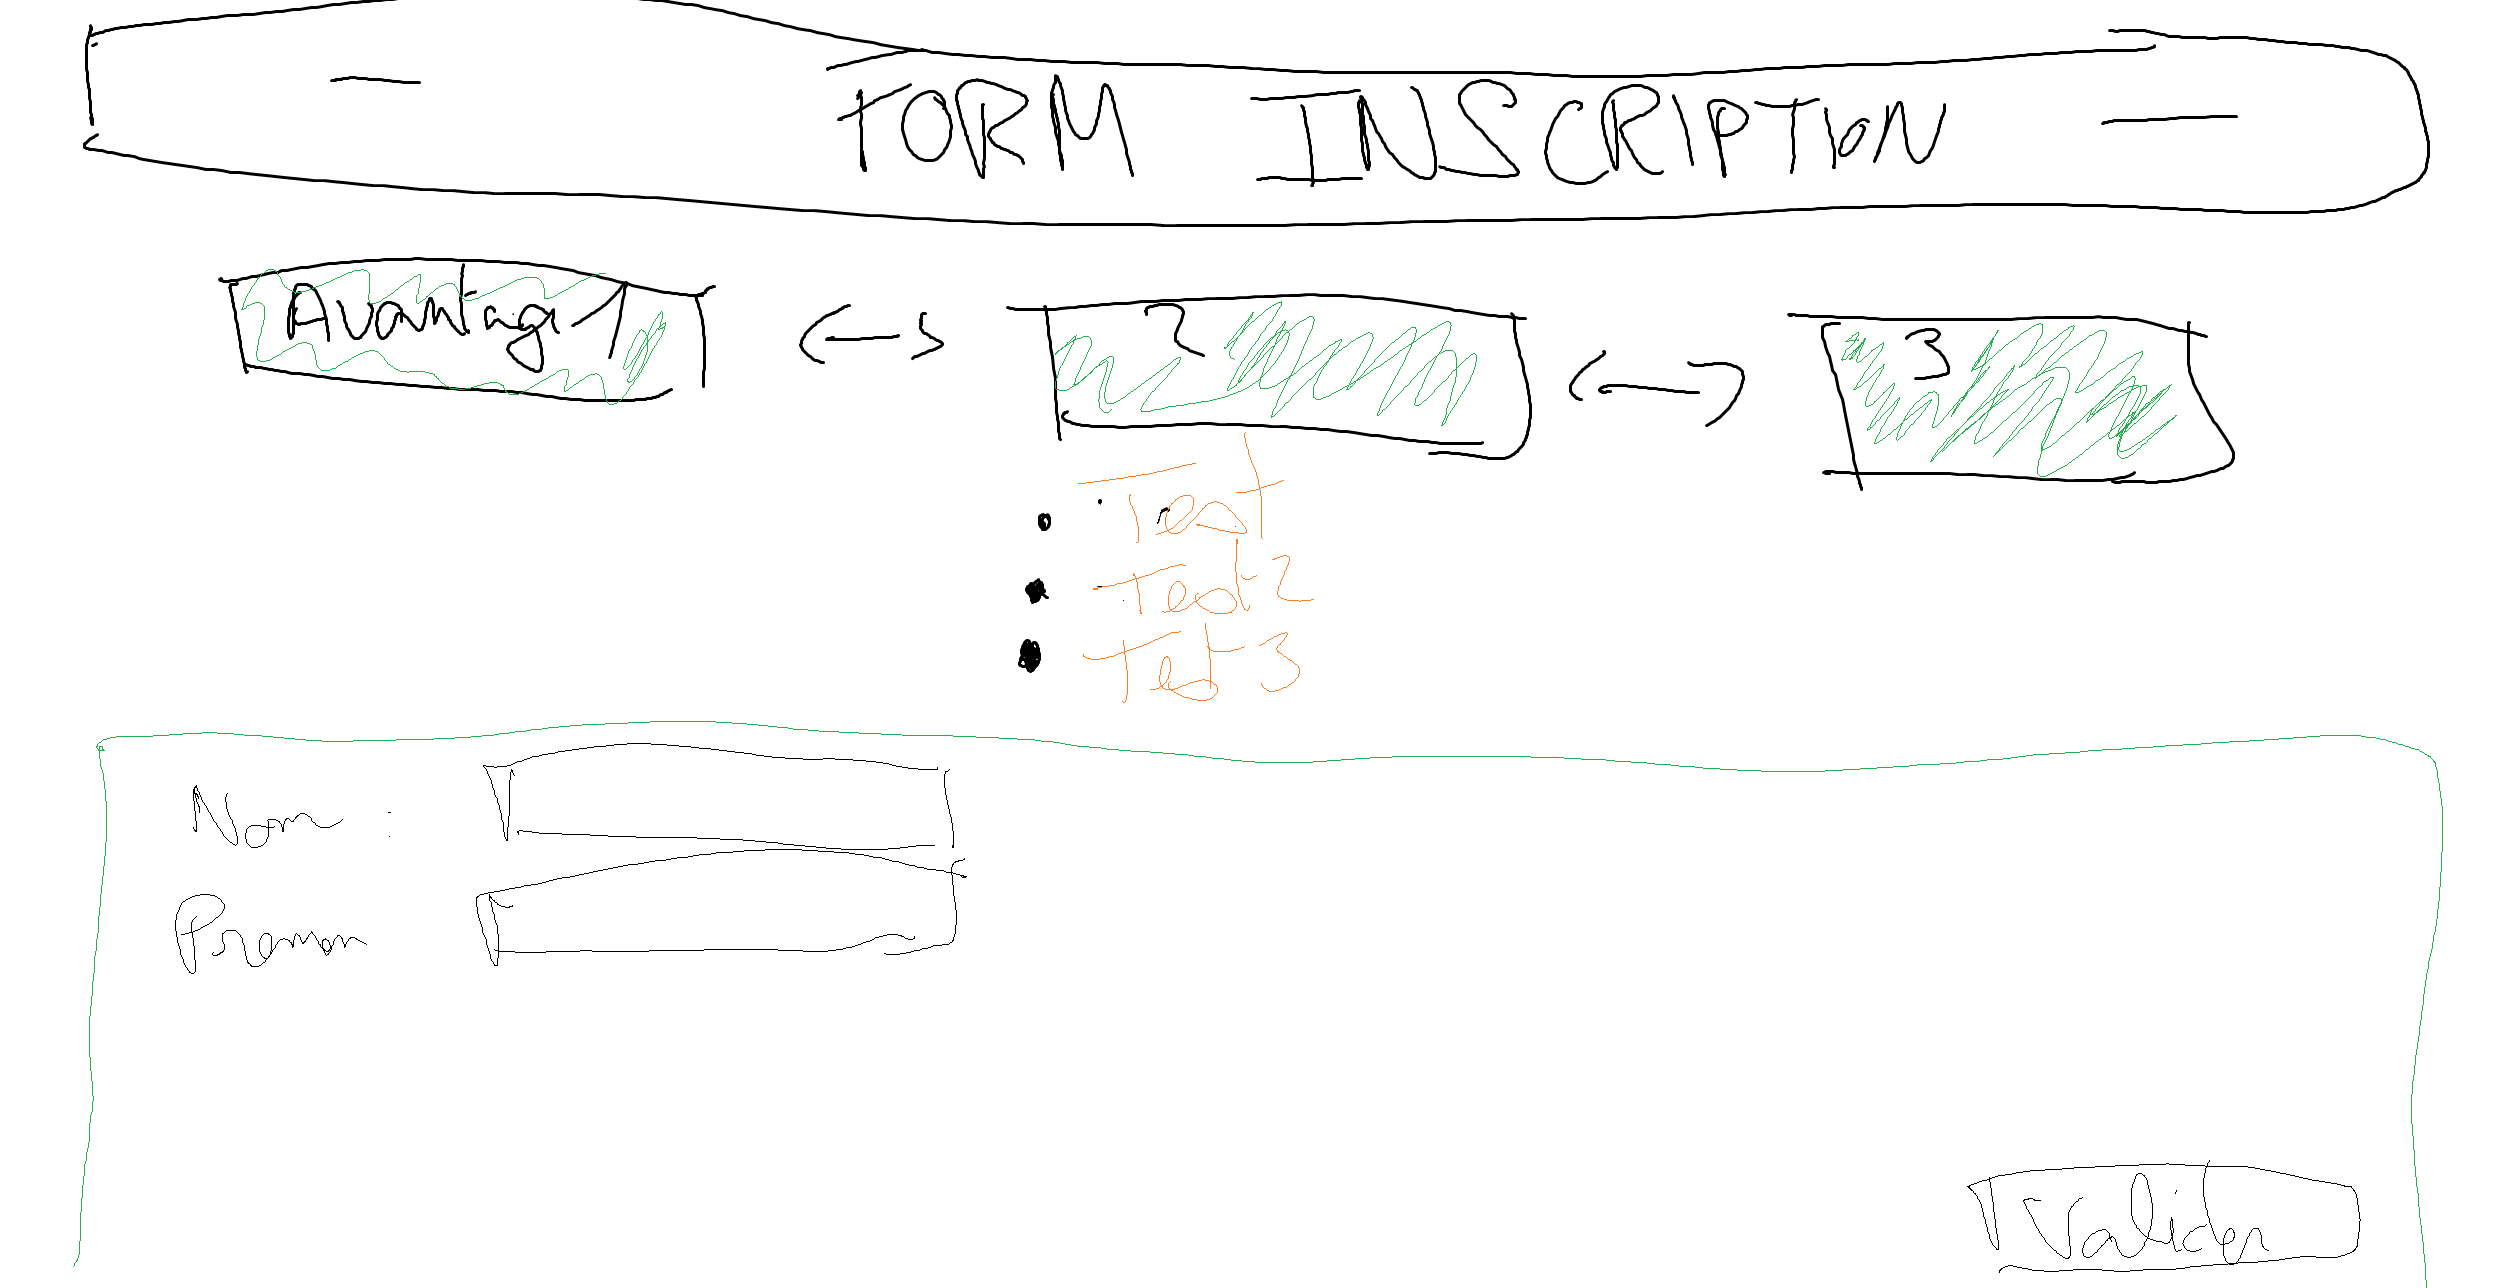 - FORM INSCRIPTION -
Avantag 1 2 3
Test
Test 2
Test 3
Nom :
Prenom
Valider